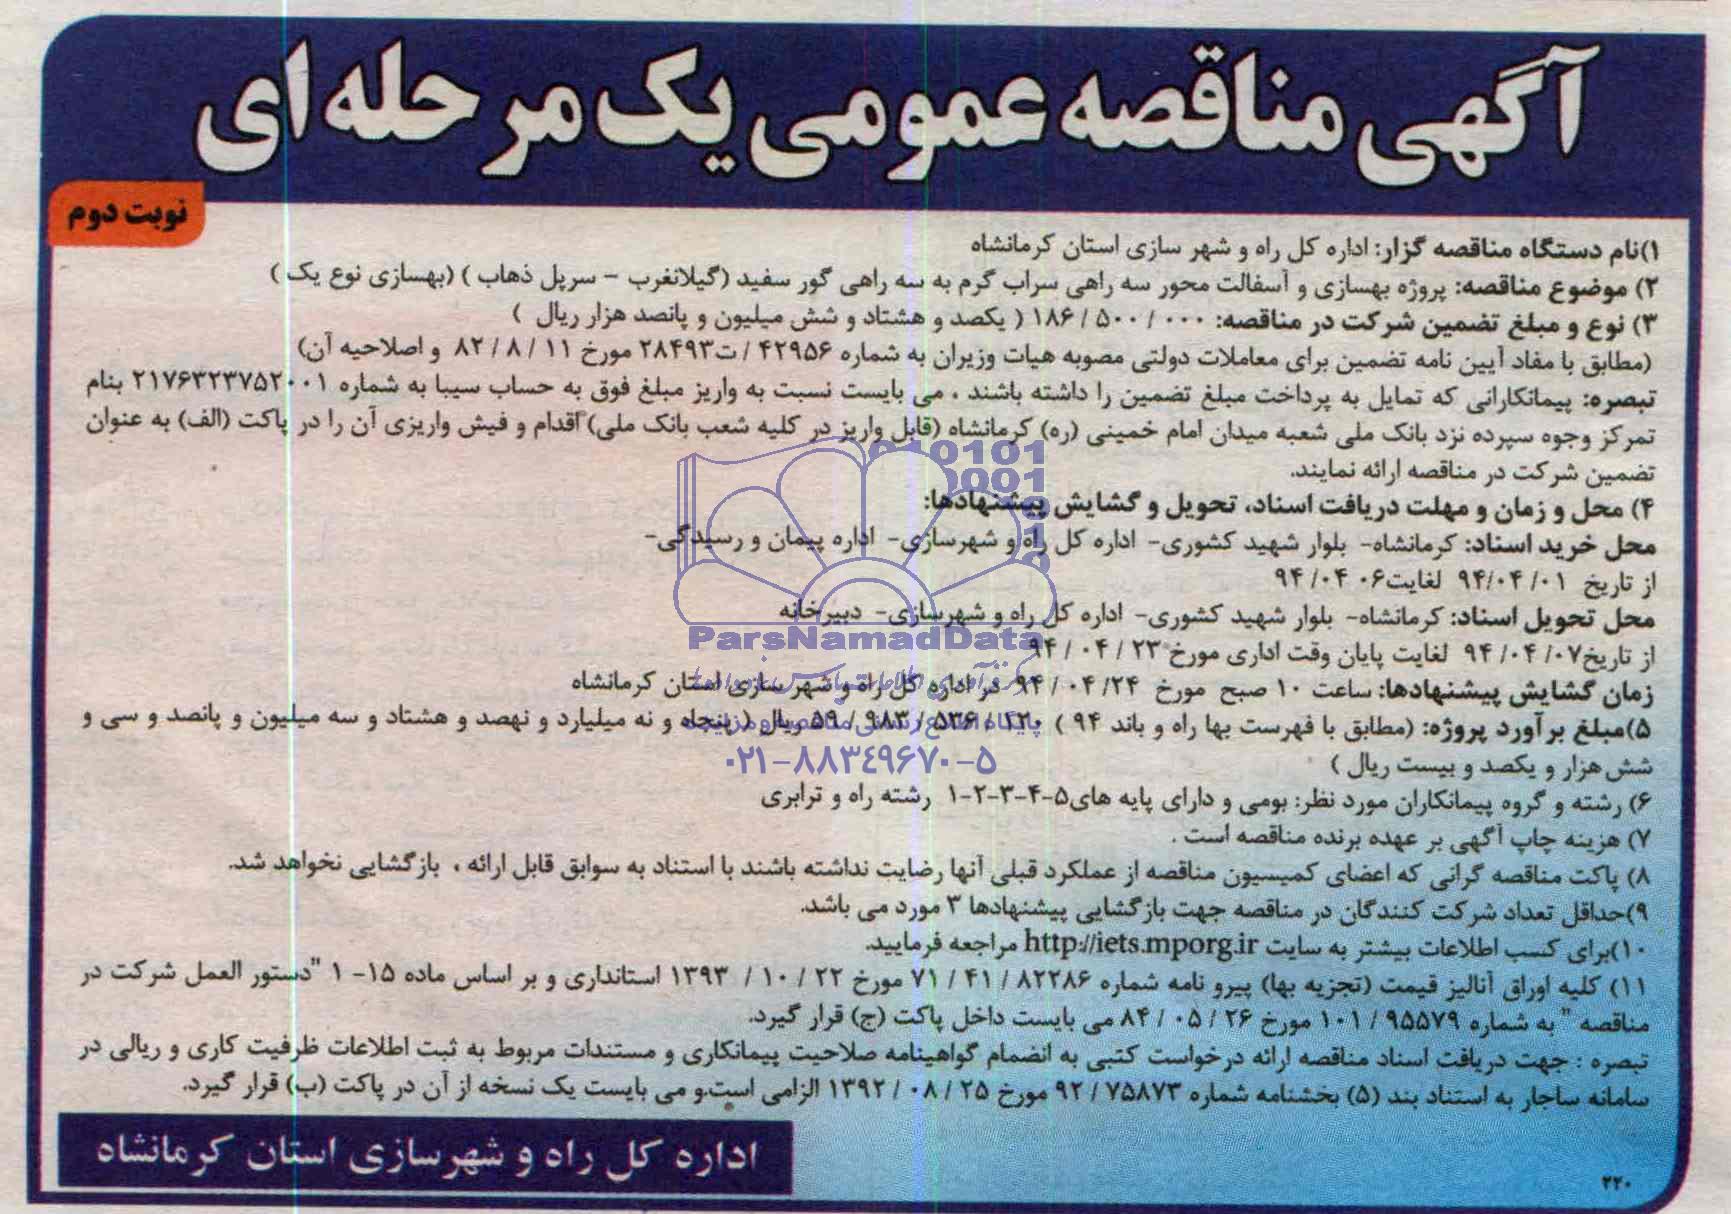 آگهی مناقصه عمومی یک مرحله ای
نوبت دوم
۱)نام دستگاه مناقصه گزار: اداره کل راه و شهر سازی استان کرمانشاه
۲) موضوع مناقصه: پروژه بهسازی و آسفالت محور سه راهی سراب گرم به سه راهی گور سفید (گیلانغرب – سرپل ذهاب ) (بهسازی نوع یک )
۳) نوع و مبلغ تضمین شرکت در مناقصه: ۱۸۶/۵۰۰/۰۰۰ ( یکصد و هشتاد و شش میلیون و پانصد هزار ریال )
(مطابق با مفاد آیین نامه تضمین برای معاملات دولتی مصوبه هیات وزیران به شماره ۴۲۹۵۶/ت۲۸۴۹۳ مورخ ۸۲/۸/۱۱ و اصلاحیه آن)
تبصره: پیمانکارانی که تمایل به پرداخت مبلغ تضمین را داشته باشند ، می بایست نسبت به واریز مبلغ فوق به حساب سیبا به شماره ۲۱۷۶۳۲۳۷۵۲۰۰۱ بنام
تمرکز وجوه سپرده نزد بانک ملی شعبه میدان امام خمینی (ره) کرمانشاه (قابل واریز در کلیه شعب بانک ملی) اقدام و فیش واریزی آن را در پاکت (الف) به عنوان
تضمین شرکت در مناقصه ارائه نمایند.
۴) محل و زمان و مهلت دریافت اسناد، تحویل و گشایش پیشنهادها:
محل خرید اسناد: کرمانشاه- بلوار شهید کشوری- اداره کل راه و شهرسازی- اداره پیمان و رسیدگی-
از تاریخ ۹۴/۰۴/۰۱ لغایت ۹۴/۰۴ ۰۶
محل تحویل اسناد: کرمانشاه- بلوار شهید کشوری- اداره کل راه و شهرسازی- دبیرخانه
از تاریخ ۹۴/۰۴/۰۷ لغایت پایان وقت اداری مورخ ۹۴/۰۴/۲۳
زمان گشایش پیشنهادها: ساعت ۱۰ صبح مورخ ۹۴/۰۴/۲۴ در اداره کل راه و شهر سازی استان کرمانشاه
۵)مبلغ برآورد پروژه: (مطابق با فهرست بها راه و باند ۹۴ ) ۵۹/۹۸۳/۵۳۶/۱۲۰ ریال ( پنجاه و نه میلیارد و نهصد و هشتاد و سه میلیون و پانصد و سی و
شش هزار و یکصد و بیست ریال )
۶) رشته و گروه پیمانکاران مورد نظر: بومی و دارای پایه های۵-۴-۳-۲-۱ رشته راه و ترابری
۷) هزینه چاپ آگهی بر عهده برنده مناقصه است .
۸) پاکت مناقصه گرانی که اعضای کمیسیون مناقصه از عملکرد قبلی آنها رضایت نداشته باشند با استناد به سوابق قابل ارائه ، بازگشایی نخواهد شد.
۹)حداقل تعداد شرکت کنندگان در مناقصه جهت بازگشایی پیشنهادها ۳ مورد می باشد.
۱۰)برای کسب اطلاعات بیشتر به سایت http://iets.mporg.ir مراجعه فرمایید.
۱۱) کلیه اوراق آنالیز قیمت (تجزیه بها) پیرو نامه شماره ۷۱/۴۱/۸۲۲۸۶ مورخ ۱۳۹۳/۱۰/۲۲ استانداری و بر اساس ماده ۱۵- ۱ "دستور العمل شرکت در
مناقصه " به شماره ۱۰۱/۹۵۵۷۹ مورخ ۸۴/۰۵/۲۶ می بایست داخل پاکت (ج) قرار گیرد.
تبصره : جهت دریافت اسناد مناقصه ارائه درخواست کتبی به انضمام گواهینامه صلاحیت پیمانکاری و مستندات مربوط به ثبت اطلاعات ظرفیت کاری و ریالی در
سامانه ساجار به استناد بند (۵) بخشنامه شماره ۹۲/۷۵۸۷۳ مورخ ۱۳۹۲/۰۸/۲۵ الزامی است.و می بایست یک نسخه از آن در پاکت (ب) قرار گیرد.
اداره کل راه و شهرسازی استان کرمانشاه
۲۲۰
ParsNamadData
۰۲۱-۸۸۳۴۹۶۷۰-۵